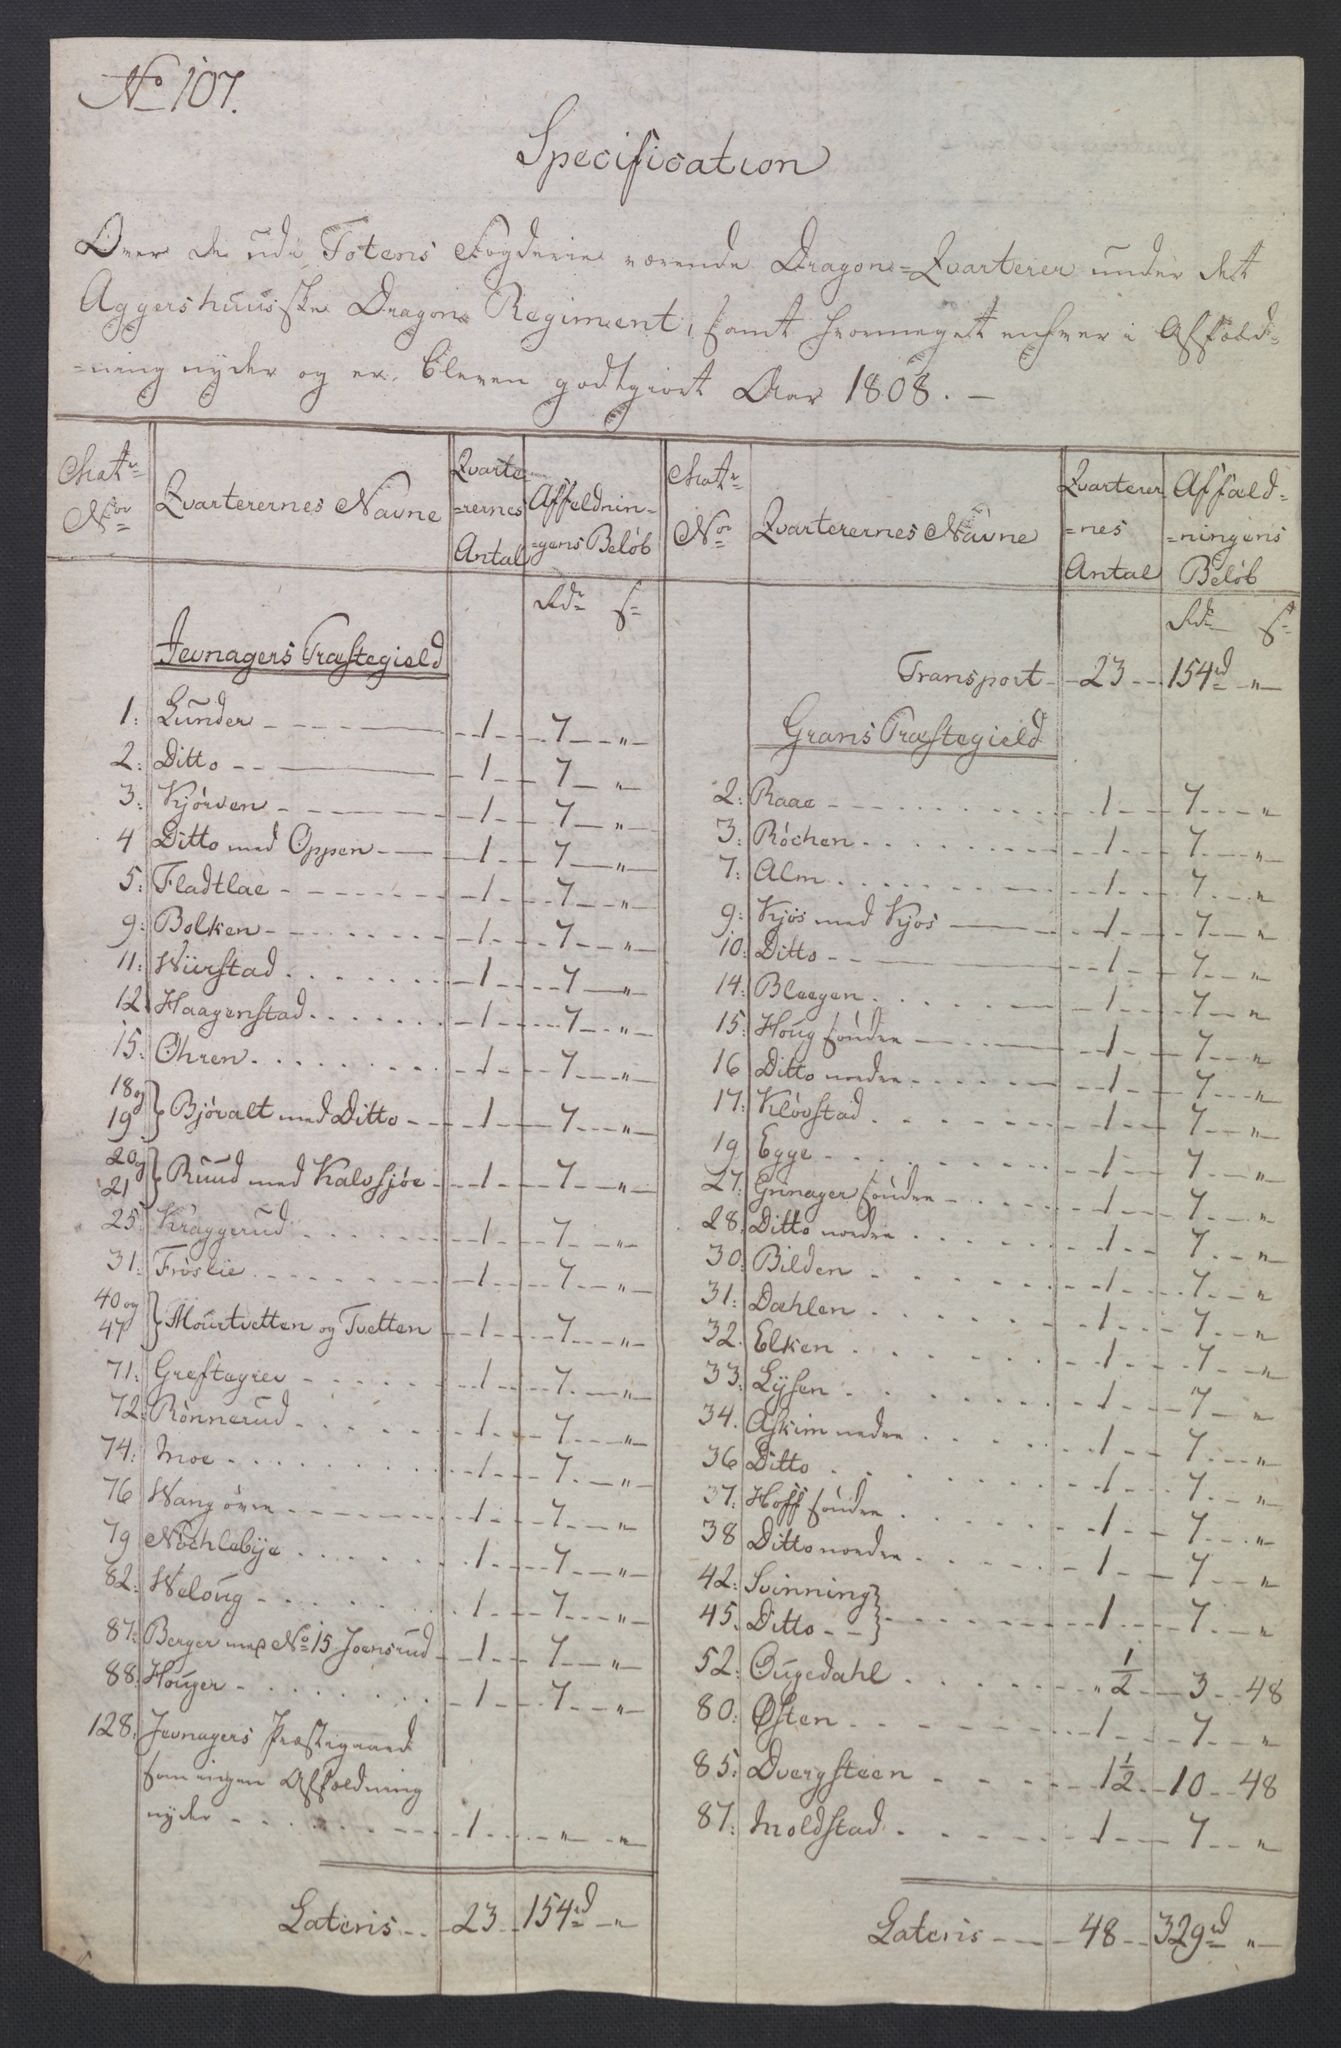 No 107.
Specification
Over de udi Totens Fogderie værende Dragon=Qvarterer under det
Aggershuusiske Dragon Regiment, samt hvormeget enhver i Affæld=
=ning nyder og er bleven godtgiort Aar 1808. —
Matr No | Qvarterernes Navne | Qvarte=rernes Antal | Affældnin=gens Beløb
Rdr s
Jevnagers Præstegield
1: Lunder 1 7 "
2: Ditto 1 7 "
3: Kjørven 1 7 "
4 Ditto med Oppen 1 7 "
5: Fladtlae 1 7 "
9: Bolken 1 7 "
11: Wiirstad 1 7 "
12 Haagenstad 1 7 "
15: Øhren 1 7 "
18 og 19 } Bjøralt med Ditto 1 7 "
20 og 21 } Ruud med Kalvsjøe 1 7 "
25 Kraggerud 1 7 "
31: Frøslie 1 7 "
40 og 47 } Mourtvetten og Tvetten 1 7 "
71: Greftegrev 1 7 "
72: Rønnerud 1 7 "
74: Moe 1 7 "
76 Wang øvre 1 7 "
79 Nøchlebye 1 7 "
82: Weloug 1 7 "
87: Berger med No 15 Joensrud 1 7 "
88: Houger 1 7 "
128: Jevnagers Præstegaard
som ingen Affældning
nyder 1 " "
Lateris 23 154rd "
Matr No | Qvarterernes Navne | Qvarterer=nes Antal | Affæld=ningens Beløb
Rdr s
Transport 23 154rd "
Grans Præstegield
2: Raae 1 7 "
3: Røchen 1 7 "
7: Alm 1 7 "
9: Kjøs med Kjos 1 7 "
10: Ditto 1 7 "
14: Bleegen 1 7 "
15: Houg søndre 1 7 "
16 Ditto nordre 1 7 "
17: Kløvstad 1 7 "
19 Egge 1 7 "
27: Grinager søndre 1 7 "
28: Ditto nordre 1 7 "
30: Bilden 1 7 "
31: Dæhlen 1 7 "
32. Elken 1 7 "
33: Lysen 1 7 "
34. Askim nedre 1 7 "
36 Ditto 1 7 "
37: Hoff søndre 1 7 "
38 Ditto nordre 1 7 "
42: Svinning }
45. Ditto } 1 7 "
52: Ougedahl " 1/2 3 48
80: Østen 1 7 "
85: Dvergsteen 1 1/2 10 48
87: Moldstad 1 7 "
Lateris 48 329rd "